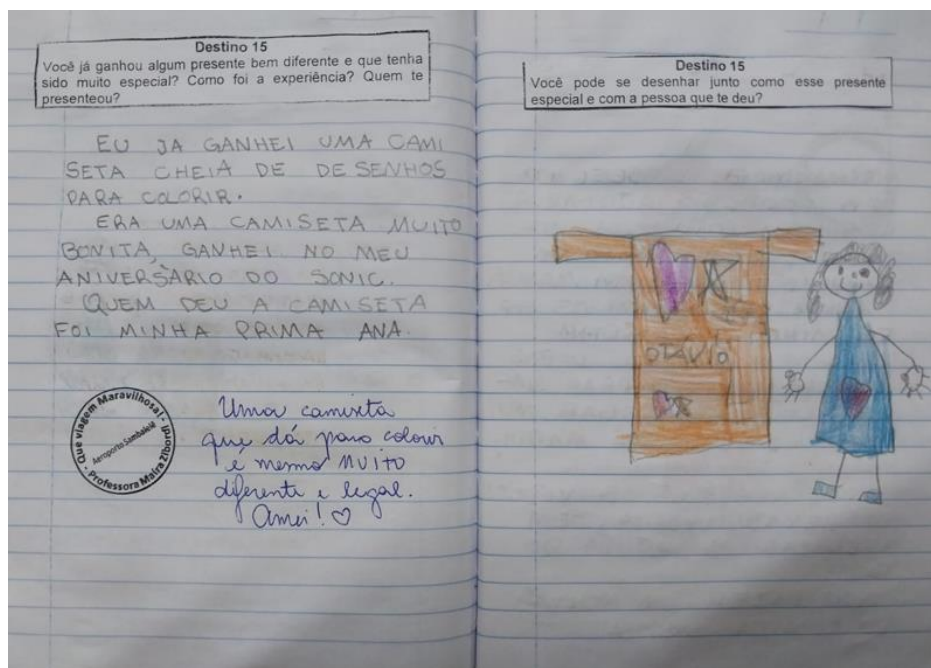 Destino 15
Você já ganhou algum presente bem diferente e que tenha
sido muito especial? Como foi a experiência? Quem te
presenteou?
EU JA GANHEI UMA CAMI
SETA CHEIA DE DESENHOS
PARA COLORIR.
ERA UMA CAMISETA MUITO
BONITA, GANHEI NO MEU
ANIVERSÁRIO DO SONIC.
QUEM DEU A CAMISETA
FOI MINHA PRIMA ANA.
Que viagem Maravilhosa! -
Aeroporto Sambalelê
- Professora Maíra Zibordi
Uma camiseta
que dá para colorir
é mesmo MUITO
diferente e legal.
Amei! ♡
Destino 15
Você pode se desenhar junto como esse presente
especial e com a pessoa que te deu?
OTÁVIO